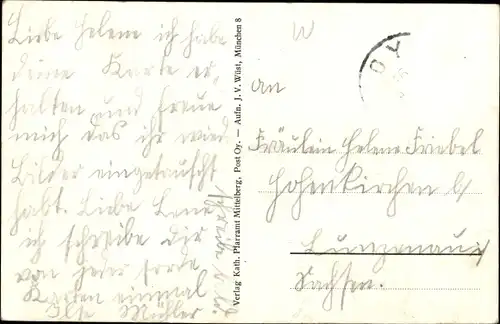 Liebe Helene ich habe
deine Karte er-
halten und freue
mich das ihr wied
Bilder eingetauscht
habt. Liebe Lene
ich schreibe dir
von jeder Sorte
Karten einmal
Ilse Müller
Verlag Kath. Pfarramt Mittelberg, Post Oy. — Aufn. J. V. Wüst, München 8
W
OY
An
Fräulein Helene Friebel
Hohenkirchen b/
Lunzenau i/
Sachsen.